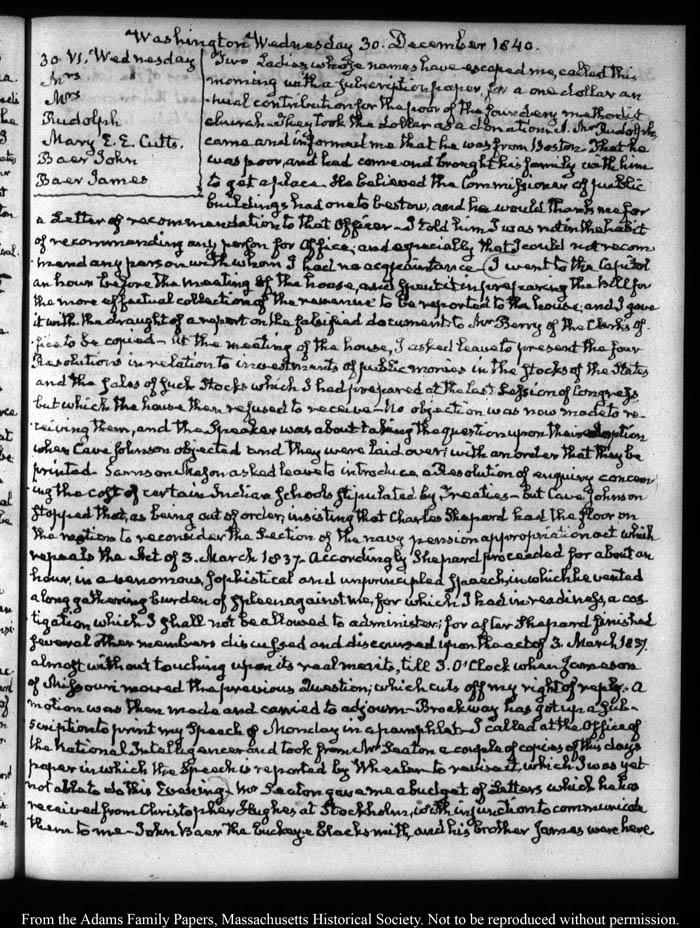 Washington Wednesday 30. December 1840.
30. VI. Wednesday
Mrs
Mrs
Rudolph
Mary E. E. Cutts.
Baer John
Baer James
Two Ladies, whose names have escaped me, called this
morning with a subscription paper, for a one dollar an-
nual contribution for the poor of the foundery methodist
church. They took the dollar as a donation. A Mr Rudolph
came and informed me that he was from Boston. That he
was poor, and had come and brought his family with him
to get a place. He believed the Commissioner of public
buildings had one to bestow, and he would thank me for
a Letter of recommendation to that Officer. I told him I was not in the habit
of recommending any person for Office; and especially that I could not recom-
mend any person with whom I had no acquaintance. I went to the Capitol
an hour before the meeting of the house, and spent it in preparing the bill for
the more effectual collection of the revenue to be reported to the house; and I gave
it with the draught of a report on the falsified document to Mr Berry of the Clerks of-
fice to be copied. At the meeting of the house, I asked leave to present the four
Resolutions in relation to investments of public monies in the Stocks of the States
and the sales of such stocks which I had prepared at the last Session of Congress
but which the house then refused to receive. No objection was now made to re-
ceiving them, and the Speaker was about taking the question upon their adoption
when Cave Johnson objected and they were laid over; with an order that they be
printed. Samson Mason asked leave to introduce a Resolution of enquiry concern-
ing the cost of certain Indian Schools stipulated by Treaties. but Cave Johnson
stopped that, as being out of order, insisting that Charles Shepard had the floor on
the motion to reconsider the Section of the navy pension appropriation act which
repeals the Act of 3. March 1837. Accordingly Shepard proceeded for about an
hour, in a venomous, sophistical and unprincipled Speech, in which he vented
a long gathering burden of spleen against me, for which I had in readiness, a cas-
tigation which I shall not be allowed to administer; for after Shepard finished
several other members discussed and discoursed upon the act of 3. March 1837.
almost without touching upon its real merits, till 3. O'Clock when Jameson
of Missouri moved the previous Question; which cuts off my right of reply. A
motion was then made and carried to adjourn. Brockway has got up a Sub-
scription to print my Speech of Monday in a pamphlet. I called at the Office of
the National Intelligencer and took from Mr Seaton a couple of copies of this day's
paper in which the Speech is reported by Wheeler to revise it, which I was yet
not able to do this Evening. Mr Seaton gave me a budget of Letters which he has
received from Christopher Hughes at Stockholm, with injunction to communicate
them to me. John Baer the buckeye blacksmith, and his brother James were here
From the Adams Family Papers, Massachusetts Historical Society. Not to be reproduced without permission.